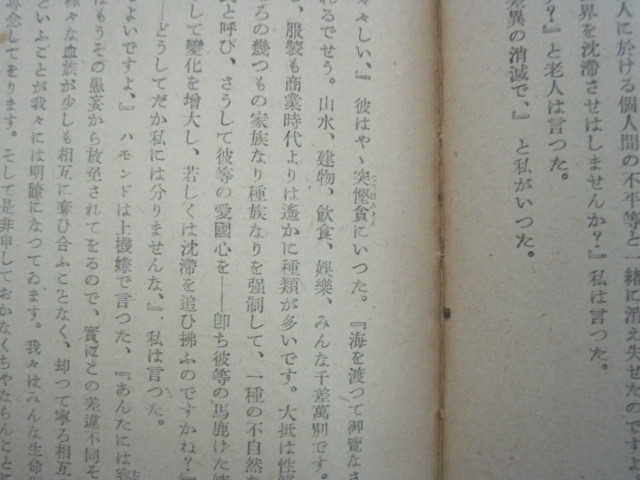 人に於ける個人間の不平等と一緒に消え失せたのですよ
界を沈滞させはしませんか？』私は言つた。
？』と老人は言つた。
差異の消滅で、』と私がいつた。
々しい、』彼はやゝ突慳貪にいつた。『海を渡つて御覽なさ
れるでせう。山水、建物、飮食、娯樂、みんな千差萬別です。
、服裝も商業時代よりは遙かに種類が多いです。大抵は性
ころの幾つもの家族なり種族なりを强制して、一種の不自然
と呼び、さうして彼等の愛國心を――卽ち彼等の馬鹿げた
して變化を增大し、若しくは沈滯を追ひ拂ふのですかね？』
――どうしてだか私には分りませんな、』私は言つた。
よいですよ、』ハモンドは上機嫌で言つた、『あんたには容
はもうその愚妄から放免されてをるので、實にこの差違不同そ
樣々な血族が少しも相互に奪ひ合ふことなく、却つて寧ろ相互
といふことが我々には明瞭になつてゐます。我々はみんな生命の
念してをります。そして是非申しておかなくちやならんことに